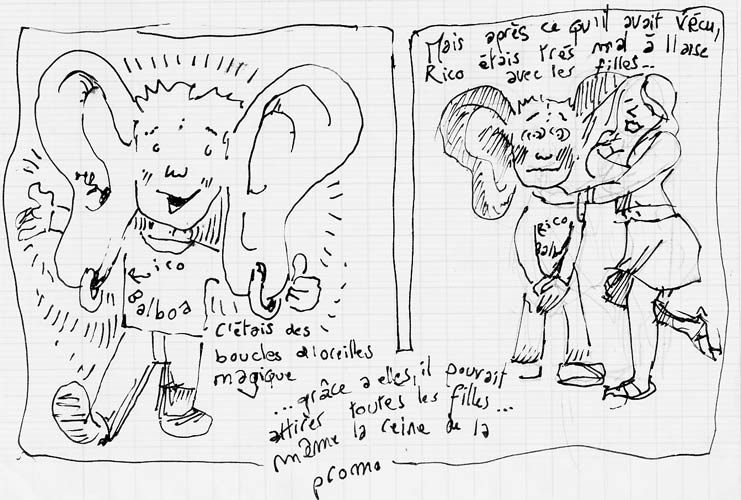 Rico
Balboa
C'étais des
boucles d'oreilles
magique
...grâce a elles, il pouvait
attirer toutes les filles...
même la reine de la
promo
Mais après ce qu'il avait vécu,
Rico étais très mal à l'laise
avec les filles...
Rico
Bal